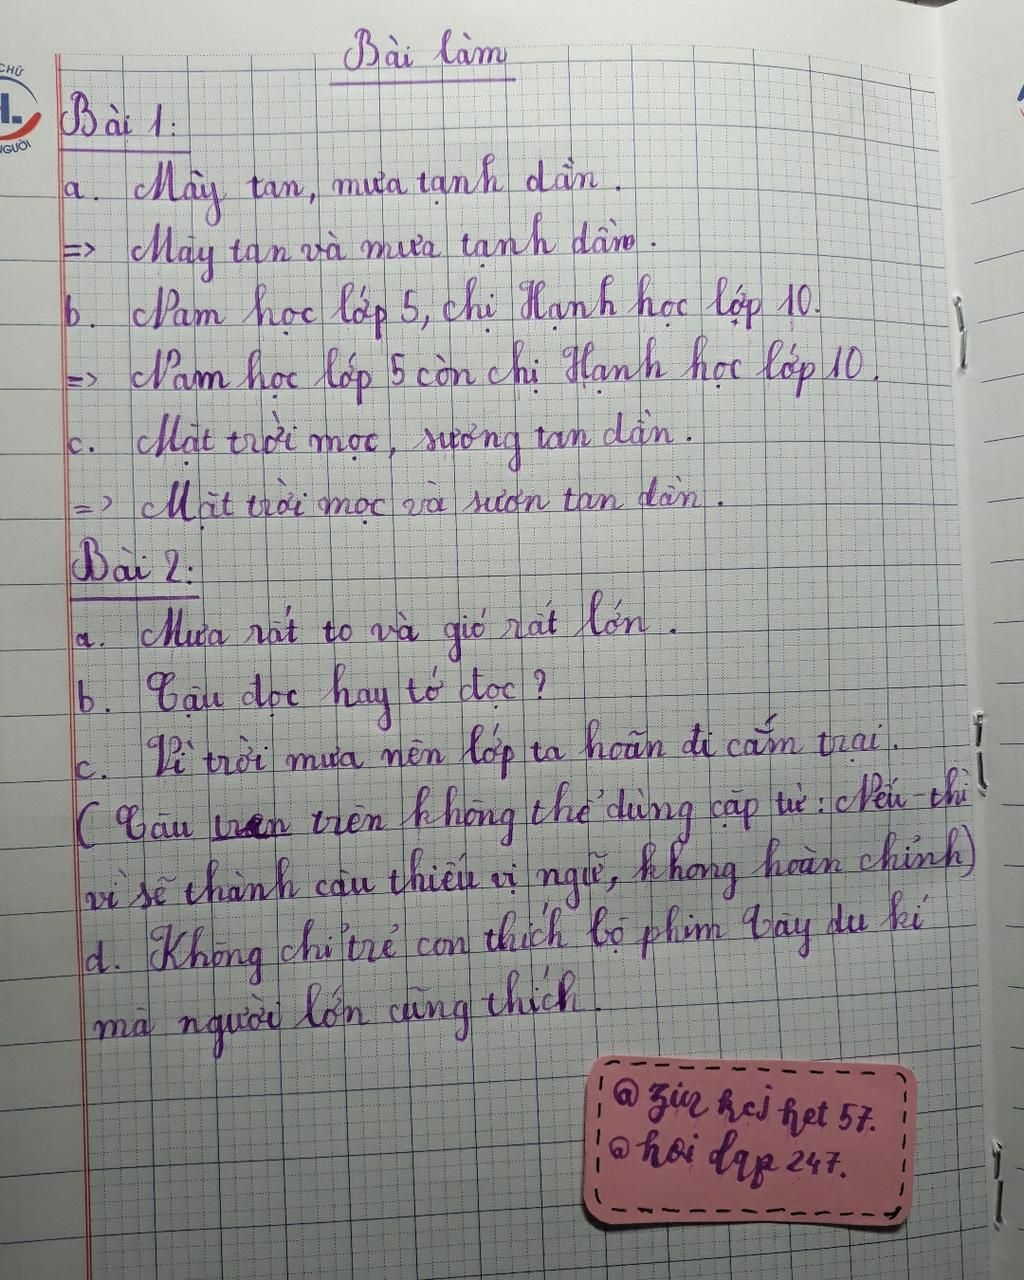 Bài làm
CHỮ
H.
NGƯỜI
Bài 1:
a. Mây tan, mưa tạnh dần.
=> Mây tan và mưa tạnh dần.
b. Nam học lớp 5, chị Hạnh học lớp 10.
=> Nam học lớp 5 còn chị Hạnh học lớp 10.
c. Mặt trời mọc, sương tan dần.
=> Mặt trời mọc và sươn tan dần.
Bài 2:
a. Mưa rất to và gió rất lớn.
b. Cậu đọc hay tớ đọc?
c. Vì trời mưa nên lớp ta hoãn đi cắm trại.
( Câu trên không thể dùng cặp từ: Nếu - thì
vì sẽ thành câu thiếu vị ngữ, không hoàn chỉnh)
d. Không chỉ trẻ con thích bộ phim Tây du kí
mà người lớn cũng thích.
@ 57.
@ hoi dap 247.